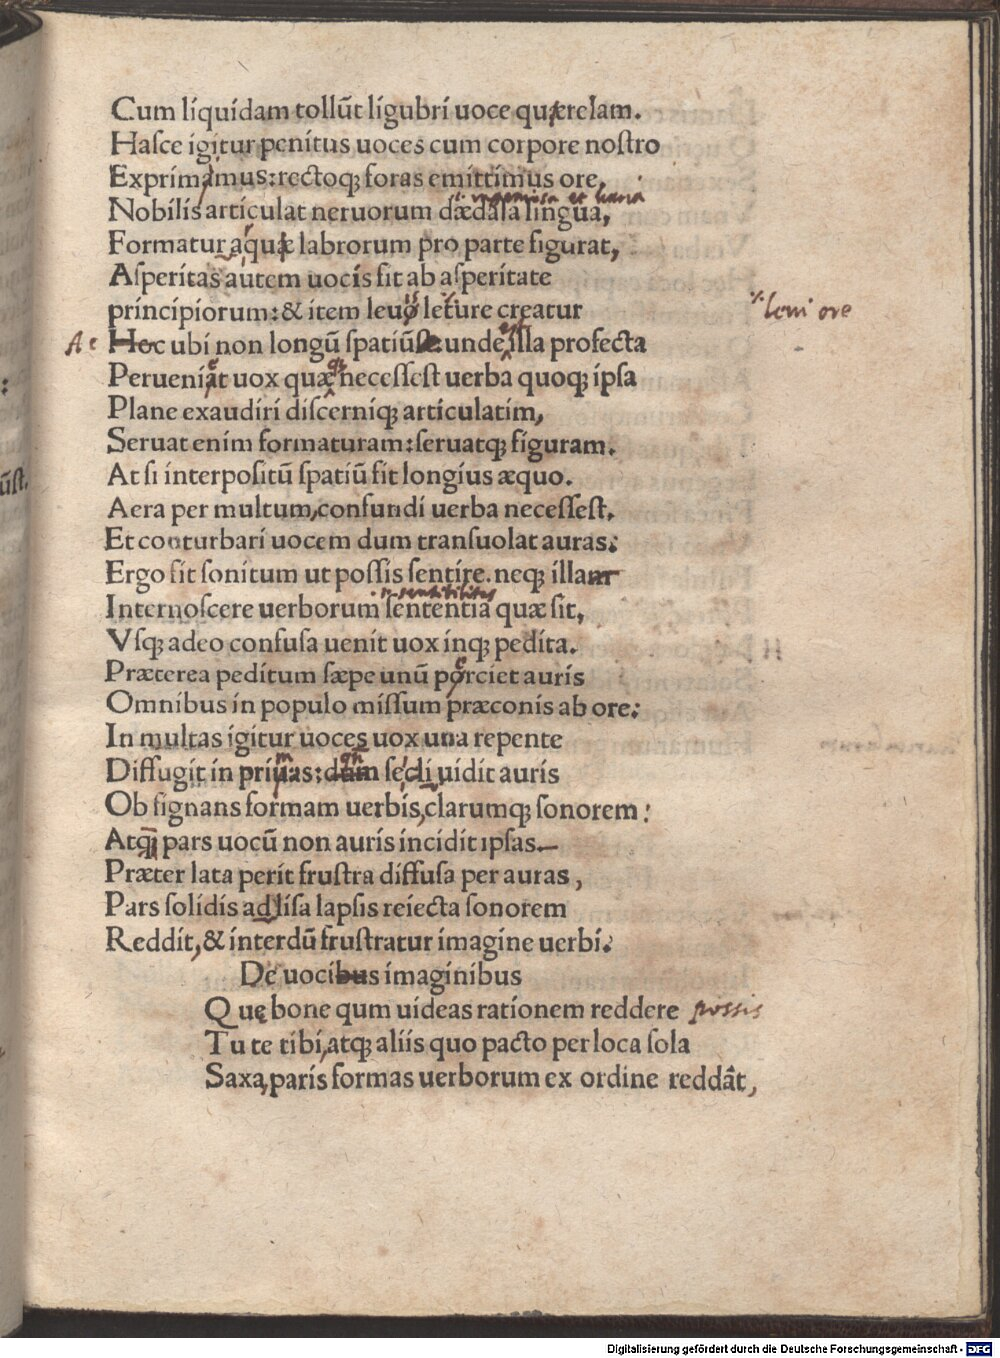 Cum liquidam tollūt ligubri uoce quærelam.
Hasce igitur penitus uoces cum corpore nostro
Exprimimus: rectoq; foras emittimus ore,
.i. ingeniosa et uaria
Nobilis articulat neruorum dædala lingua,
Formatura, quæ labrorum pro parte figurat,
Asperitas autem uocis fit ab asperitate
principiorum: & item leuo leture creatur
leni ore
Ac Hoc ubi non longū spatiū: unde est illa profecta
Perueniat uox quæq; necessest uerba quoq; ipsa
Plane exaudiri discerniq; articulatim,
Seruat enim formaturam: seruatq; figuram.
At si interpositū spatiū sit longius æquo.
Aera per multum, confundi uerba necessest,
Et conturbari uocem dum transuolat auras:
Ergo fit sonitum ut possis sentire. neq; illam
Internoscere uerborum sententia quæ sit,
Vsq; adeo confusa uenit uox inq; pedita.
Præterea peditum sæpe unū porciet auris
Omnibus in populo missum præconis ab ore:
In multas igitur uoces uox una repente
Diffugit in priuas: dum sedi uidit auris
Ob signans formam uerbis, clarumq; sonorem:
Atq; pars uocū non auris incidit ipsas
Præter lata perit frustra diffusa per auras,
Pars solidis adlisa lapsis reiecta sonorem
Reddit, & interdū frustratur imagine uerbi.
De uocibus imaginibus
Quę bone qum uideas rationem reddere possis
Tu te tibi, atq; aliis quo pacto per loca sola
Saxa, paris formas uerborum ex ordine reddāt,
ūst.
Digitalisierung gefördert durch die Deutsche Forschungsgemeinschaft - DFG